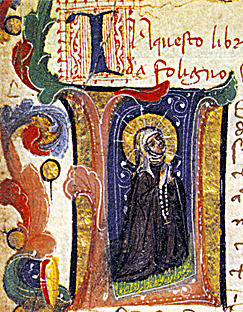 In questo libr
da foligno